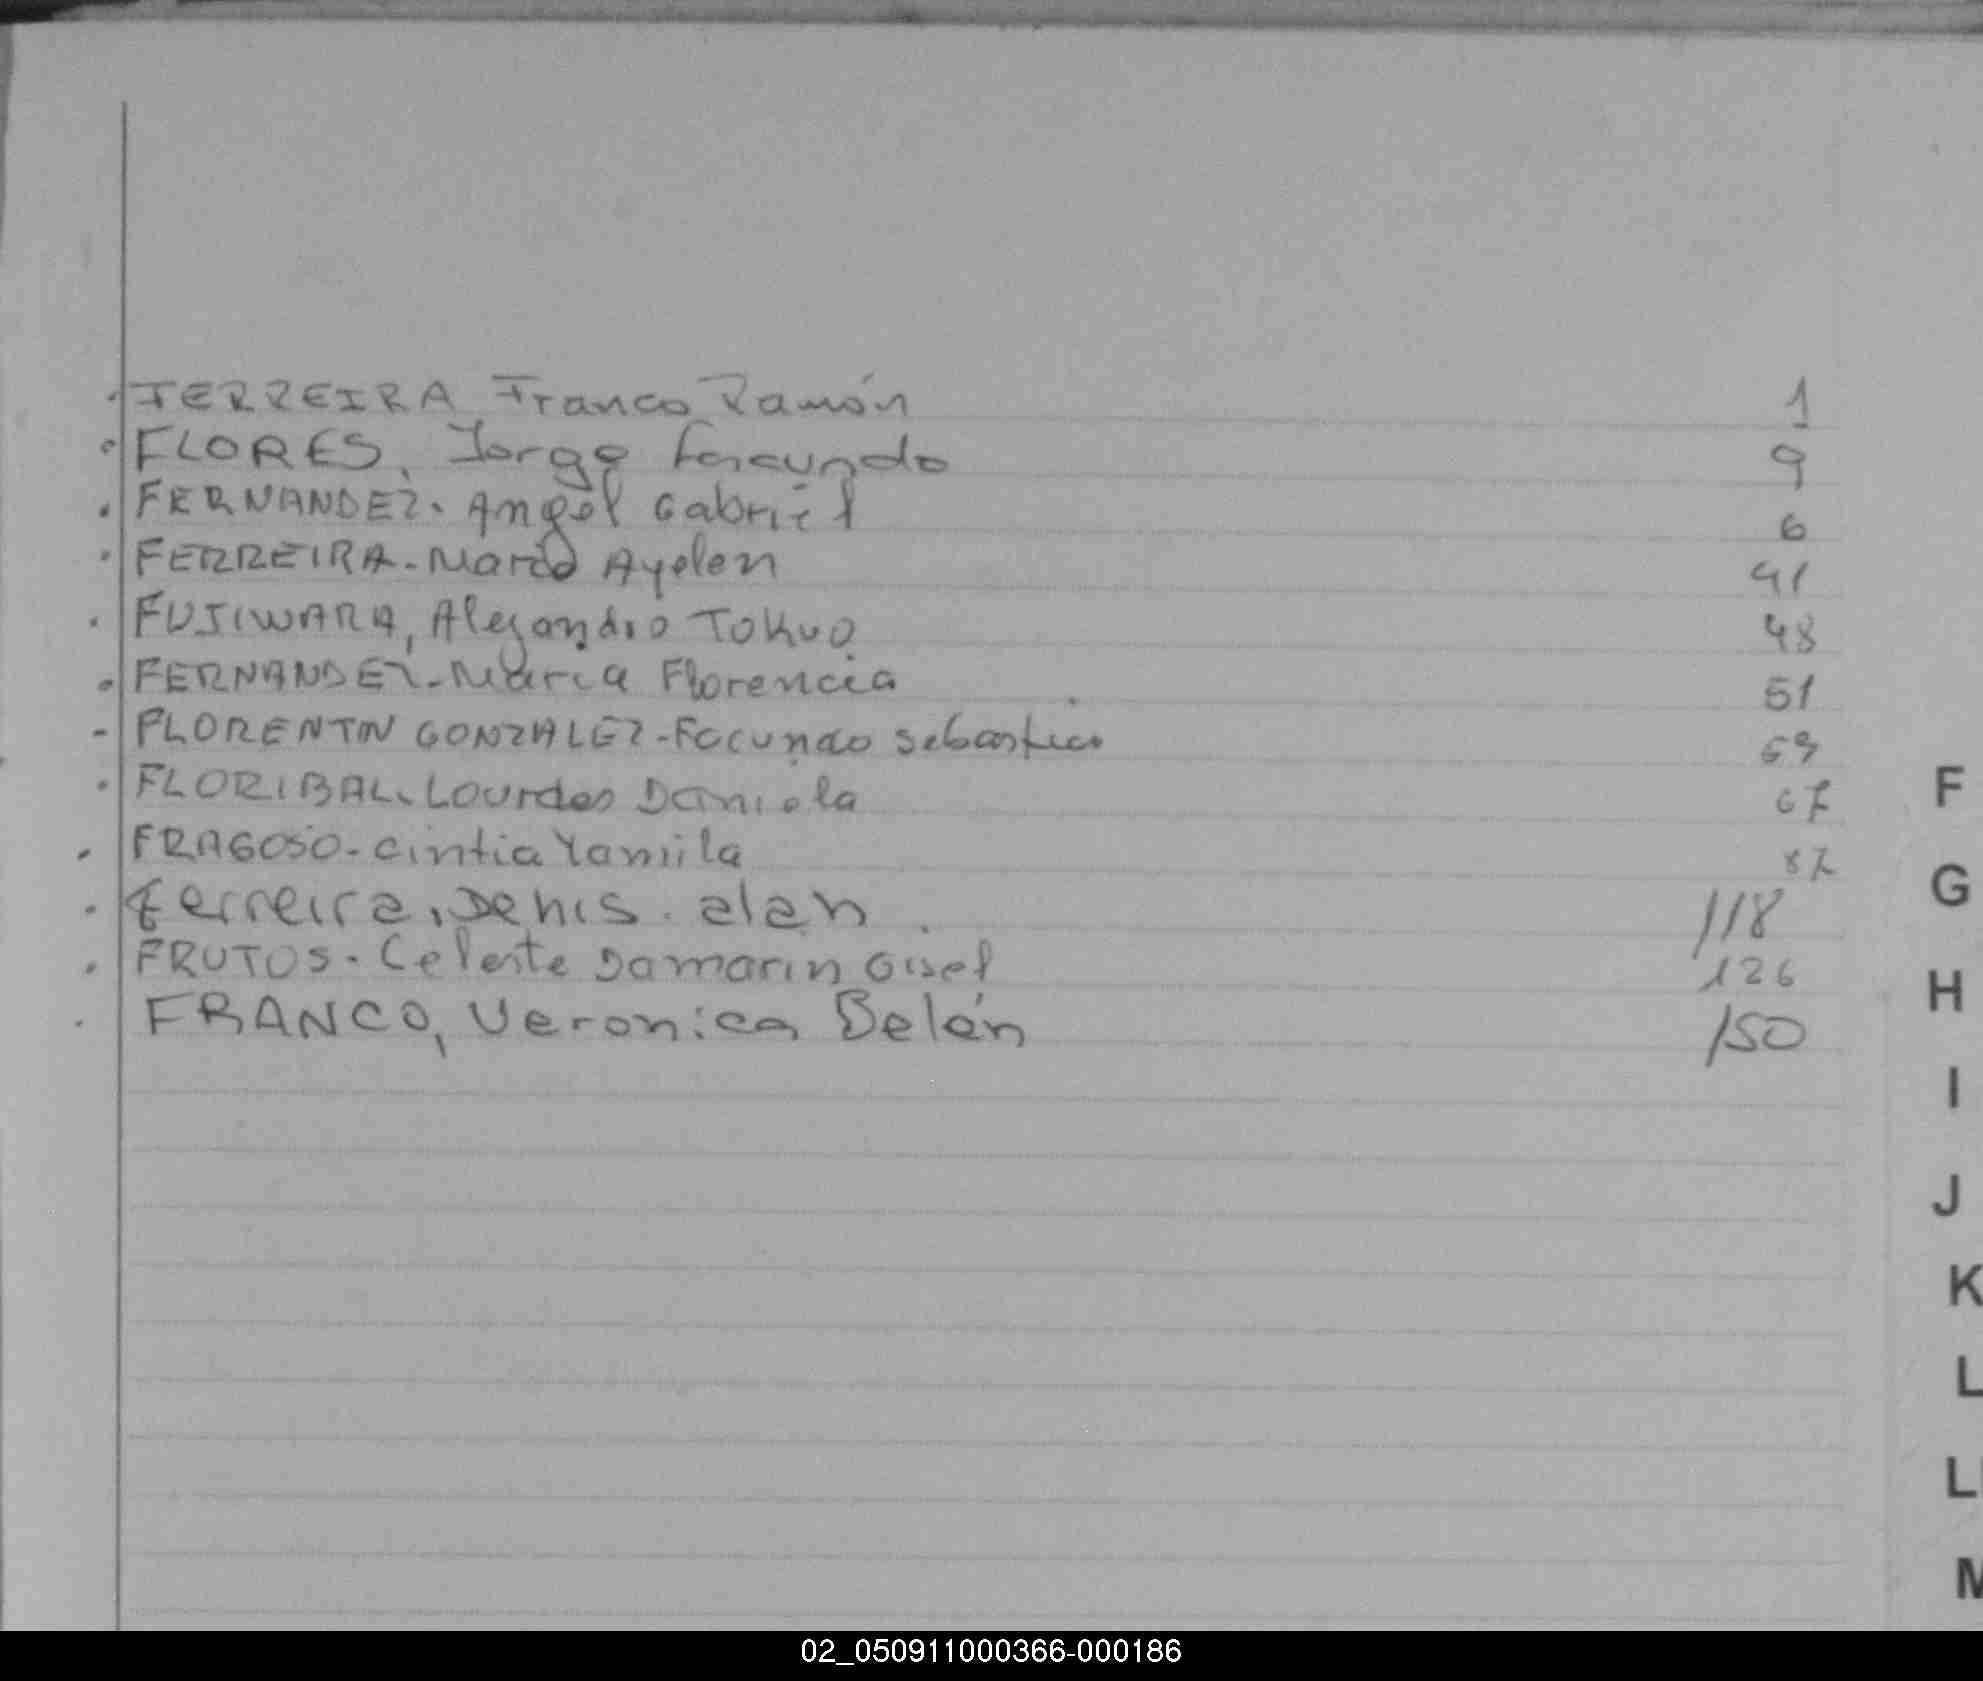 FERREIRA, Franco Ramón 1
FLORES, Jorge Facundo 9
FERNANDEZ. Angel Gabriel 6
FERREIRA - Ayelen 41
FUJIWARA, Alejandro TOKUO 48
FERNANDEZ - Maria Florencia 51
FLORENTIN GONZALEZ - Facundo Sebastian
FLORIBAL. Lourdes Daniela 67
FRAGOSO - Cintia Yamila 87
Ferreira, Denis. alan. 118
FRUTOS - Celeste Damarin Gisel 126
FRANCO, Veronica Belén 150
F
G
H
I
J
K
L
LL
M
02_050911000366-000186